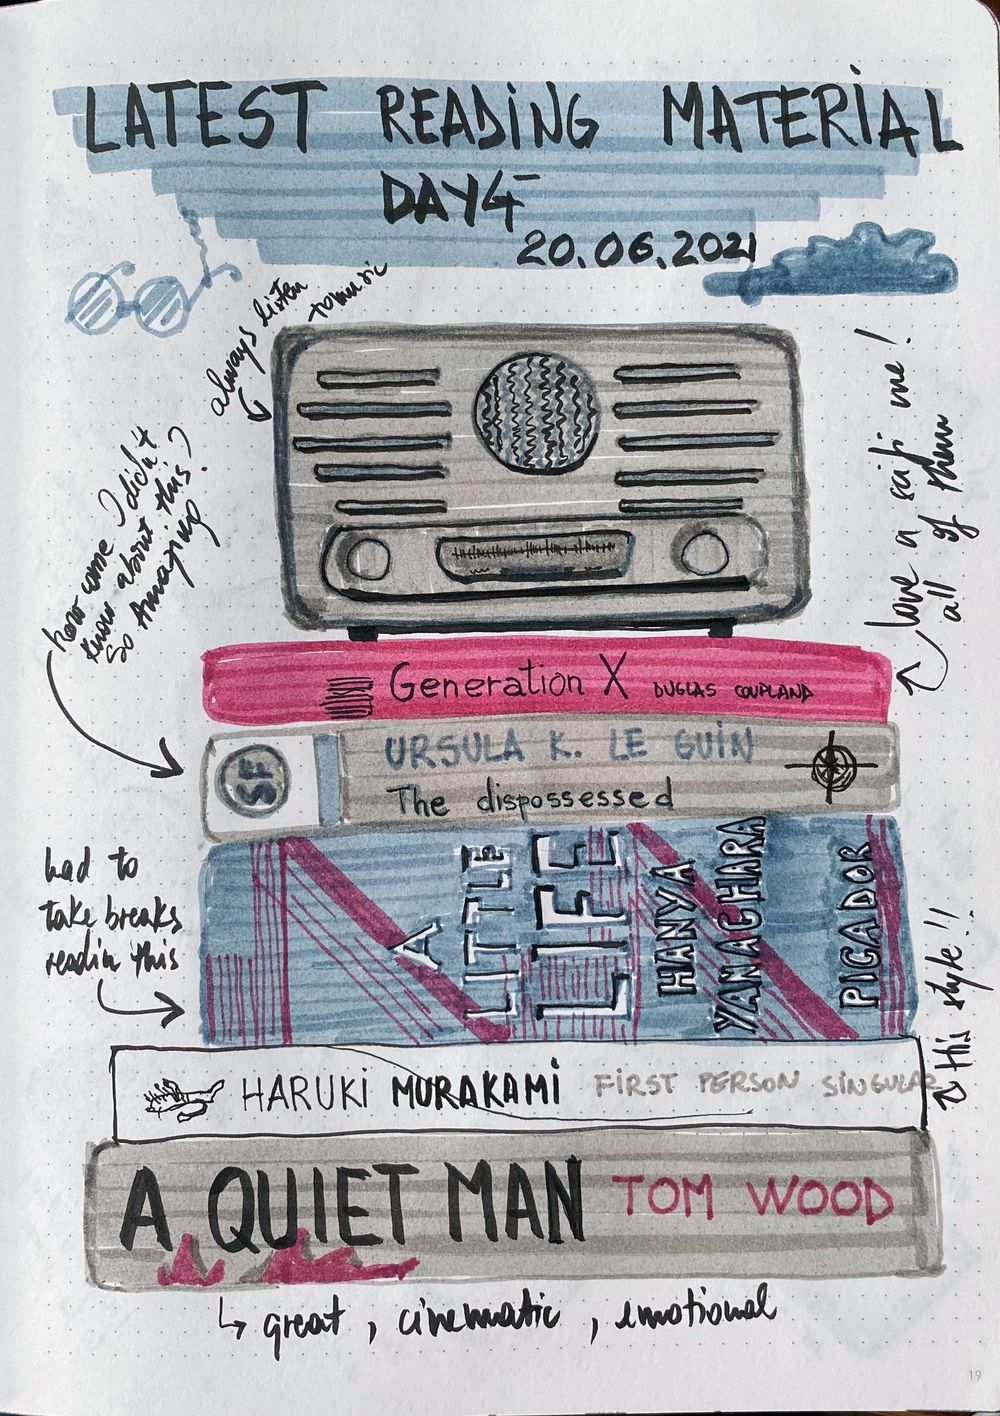 LATEST READING MATERIAL
DAY 4
20.06.2021
always listen
to music
how come I didn't
know about this?
so Amazing
love a
all of them
Generation X DUGLAS COUPLAND
SF
URSULA K. LE GUIN
The dispossessed
had to
take breaks
readin this
A
LITTLE
LIFE
HANYA
YANAGHARA
PICADOR
this style!!
HARUKI MURAKAMI FIRST PERSON SINGULAR
A QUIET MAN TOM WOOD
great, cinematic, emotional
19